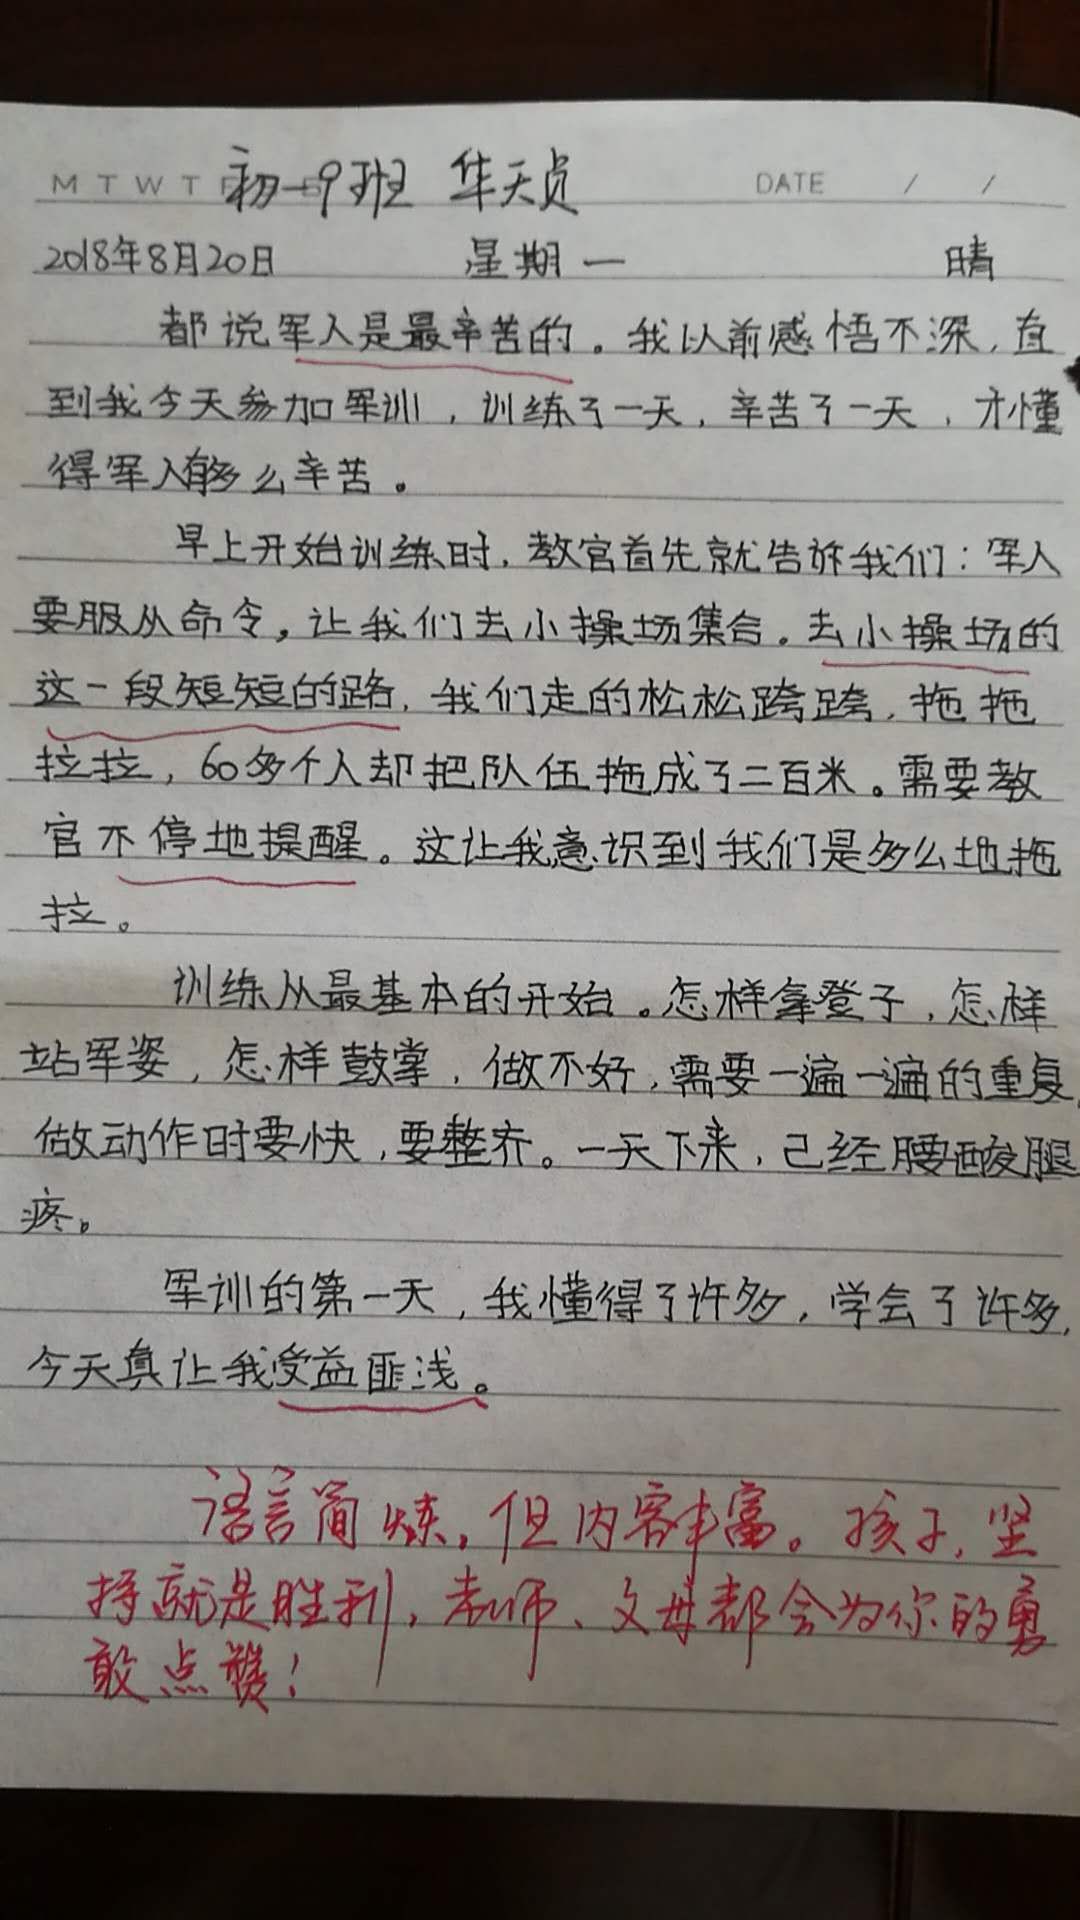 M T W T 初一9班 华天贞 DATE / /
2018年8月20日 星期一 晴
都说军人是最辛苦的。我以前感悟不深,直
到我今天参加军训,训练了一天,辛苦了一天,才懂
得军人有多么辛苦。
早上开始训练时,教官首先就告诉我们:军人
要服从命令,让我们去小操场集合。去小操场的
这一段短短的路,我们走的松松跨跨,拖拖
拉拉,60多个人却把队伍拖成了二百米。需要教
官不停地提醒。这让我意识到我们是多么地拖
拉。
训练从最基本的开始。怎样拿登子,怎样
站军姿,怎样鼓掌,做不好,需要一遍一遍的重复,
做动作时要快,要整齐。一天下来,已经腰酸腿
疼。
军训的第一天,我懂得了许多,学会了许多,
今天真让我受益匪浅。
语言简炼,但内容丰富。孩子,坚
持就是胜利,老师、父母都会为你的勇
敢点赞!